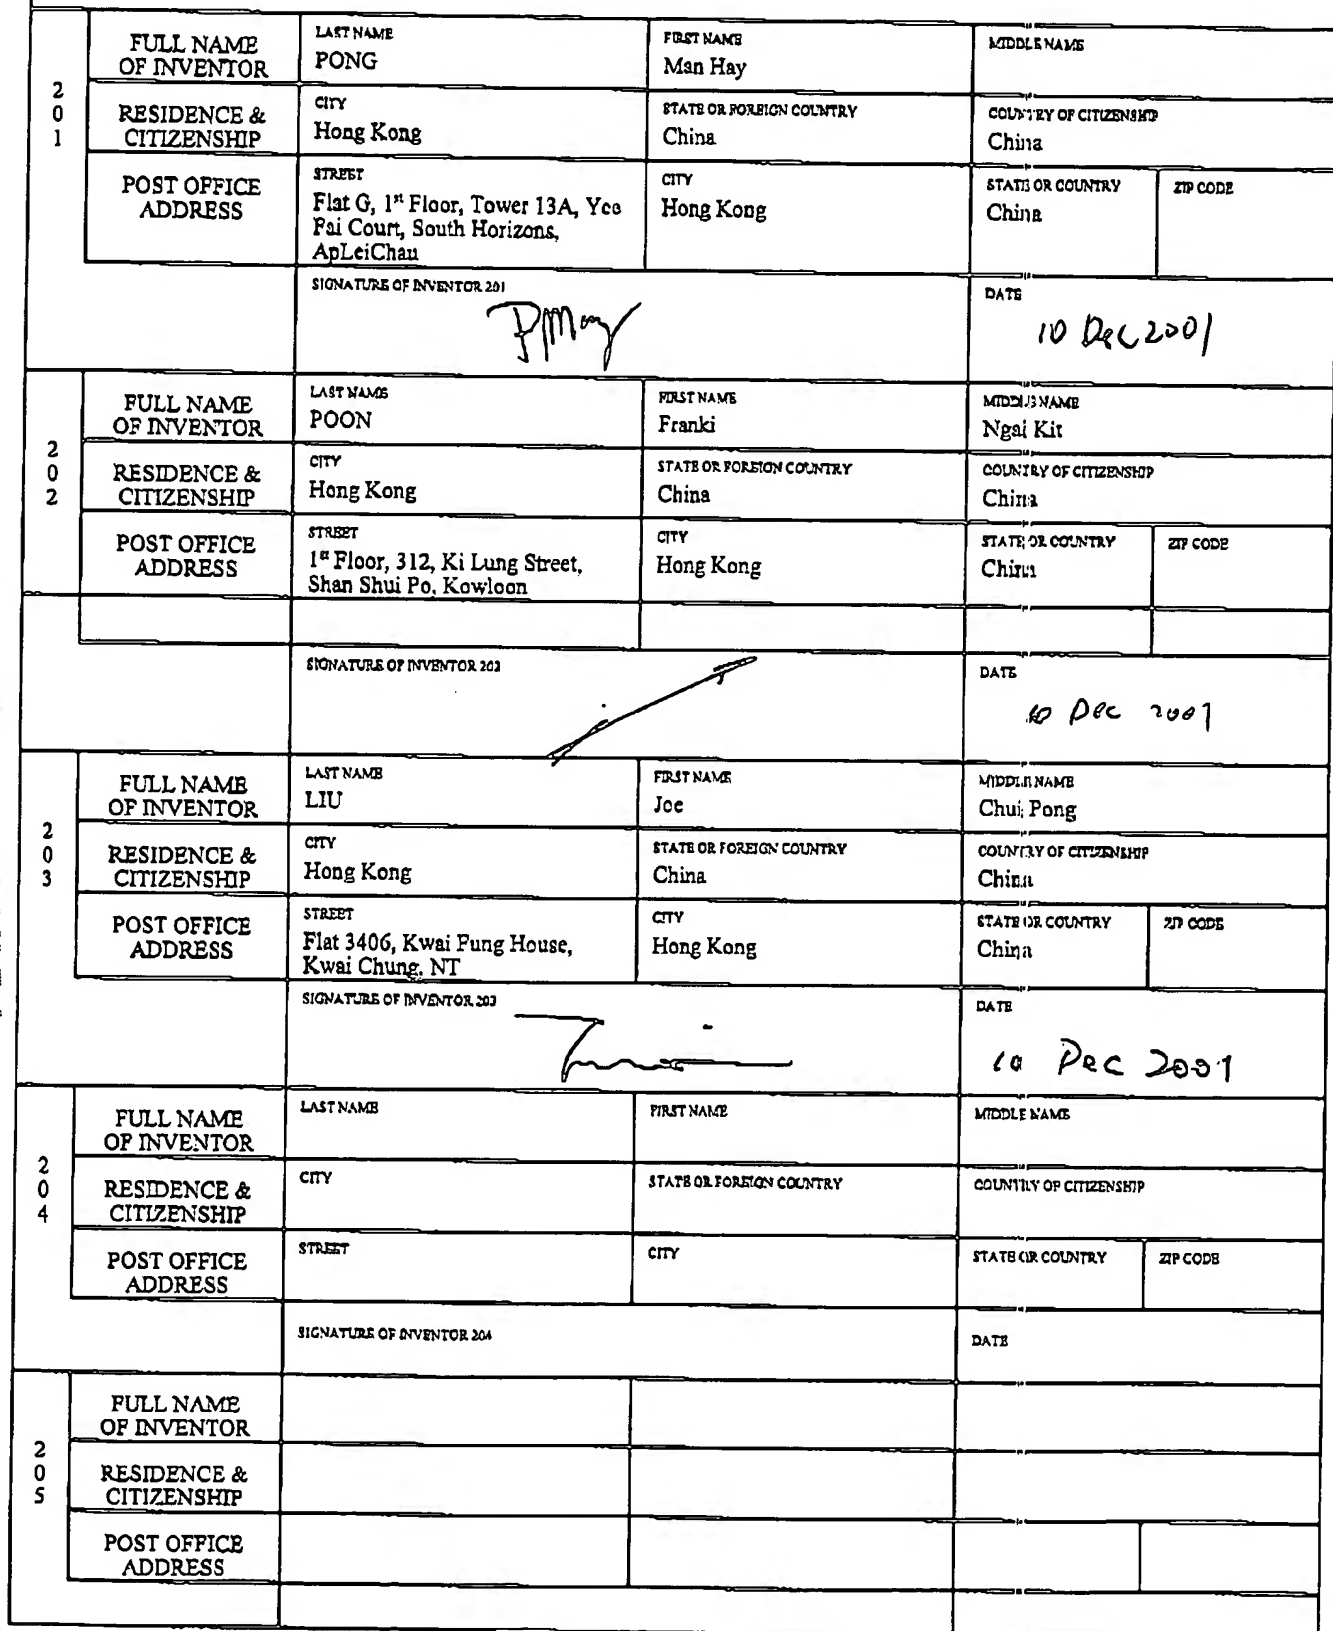 201
FULL NAME OF INVENTOR
LAST NAME
PONG
FIRST NAME
Man Hay
MIDDLE NAME
RESIDENCE & CITIZENSHIP
CITY
Hong Kong
STATE OR FOREIGN COUNTRY
China
COUNTRY OF CITIZENSHIP
China
POST OFFICE ADDRESS
STREET
Flat G, 1st Floor, Tower 13A, Yee
Fai Court, South Horizons,
ApLeiChau
CITY
Hong Kong
STATE OR COUNTRY
China
ZIP CODE
SIGNATURE OF INVENTOR 201
DATE
10 Dec 2001
202
FULL NAME OF INVENTOR
LAST NAME
POON
FIRST NAME
Franki
MIDDLE NAME
Ngai Kit
RESIDENCE & CITIZENSHIP
CITY
Hong Kong
STATE OR FOREIGN COUNTRY
China
COUNTRY OF CITIZENSHIP
China
POST OFFICE ADDRESS
STREET
1st Floor, 312, Ki Lung Street,
Shan Shui Po, Kowloon
CITY
Hong Kong
STATE OR COUNTRY
China
ZIP CODE
SIGNATURE OF INVENTOR 202
DATE
10 Dec 2001
203
FULL NAME OF INVENTOR
LAST NAME
LIU
FIRST NAME
Joe
MIDDLE NAME
Chui Pong
RESIDENCE & CITIZENSHIP
CITY
Hong Kong
STATE OR FOREIGN COUNTRY
China
COUNTRY OF CITIZENSHIP
China
POST OFFICE ADDRESS
STREET
Flat 3406, Kwai Fung House,
Kwai Chung, NT
CITY
Hong Kong
STATE OR COUNTRY
China
ZIP CODE
SIGNATURE OF INVENTOR 203
DATE
10 Dec 2001
204
FULL NAME OF INVENTOR
LAST NAME
FIRST NAME
MIDDLE NAME
RESIDENCE & CITIZENSHIP
CITY
STATE OR FOREIGN COUNTRY
COUNTRY OF CITIZENSHIP
POST OFFICE ADDRESS
STREET
CITY
STATE OR COUNTRY
ZIP CODE
SIGNATURE OF INVENTOR 204
DATE
205
FULL NAME OF INVENTOR
RESIDENCE & CITIZENSHIP
POST OFFICE ADDRESS